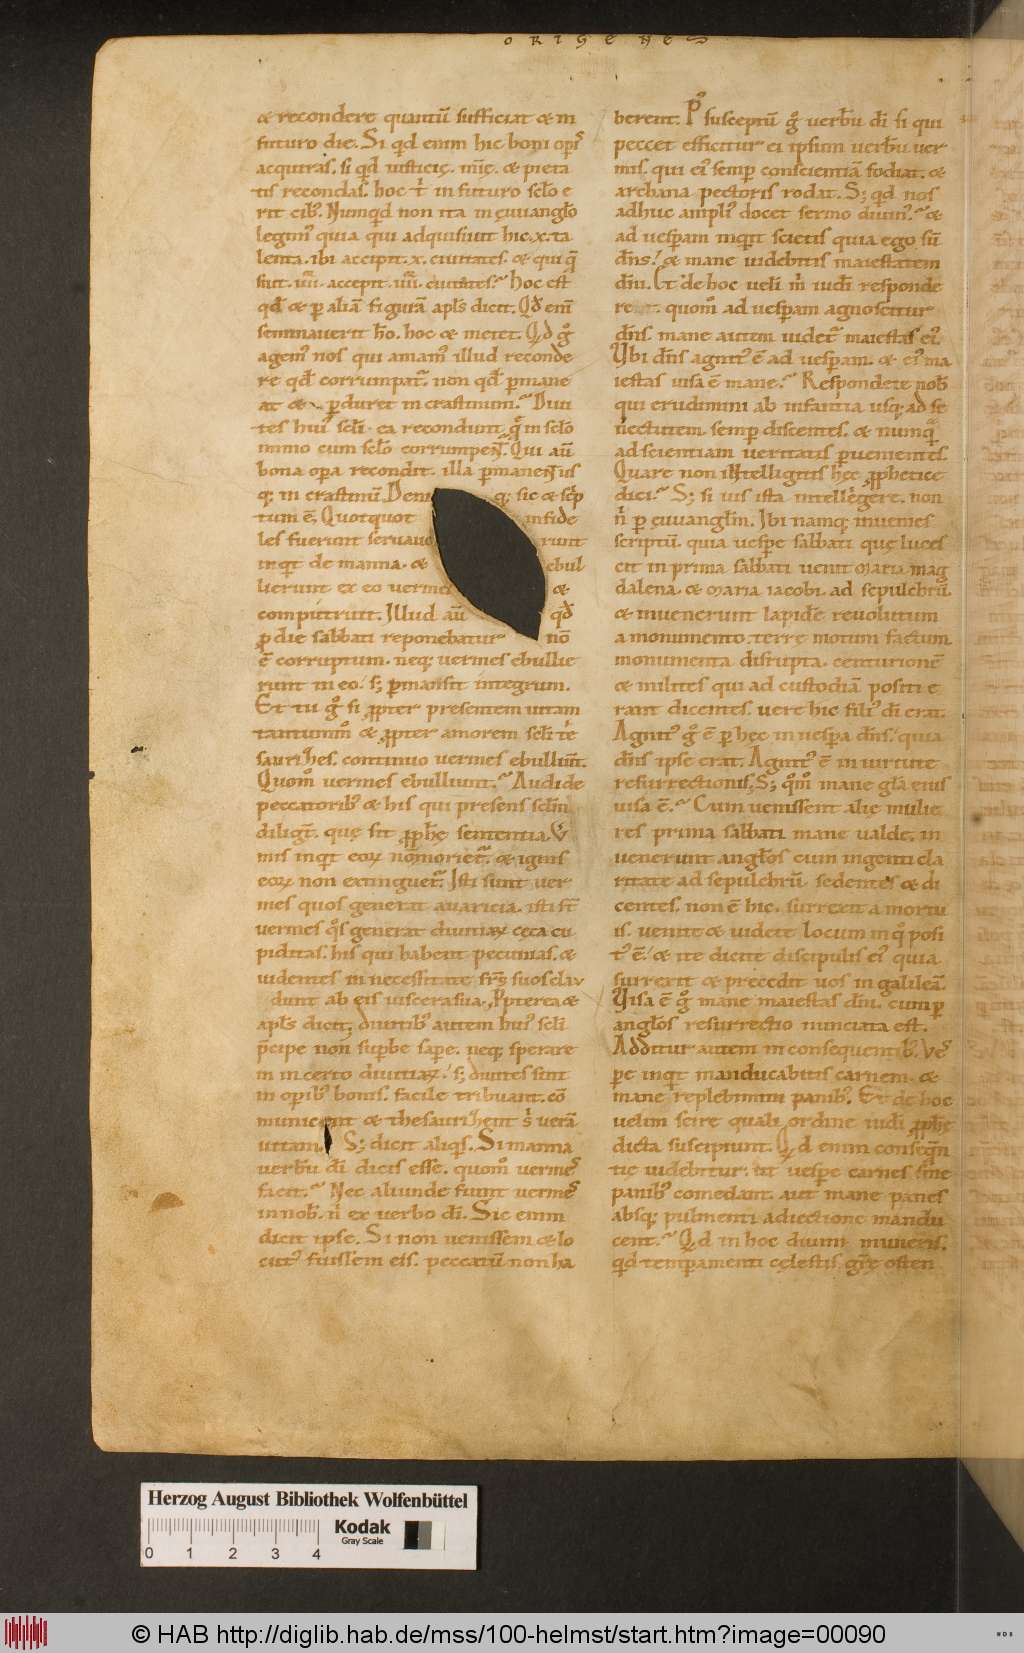 ORIGENES
& recondere quantū sufficiat & in
futuro die. Si qd enim hic boni opis
acquiras. si qd iusticię. mię. & pieta
tis recondas. hoc t̄ in futuro sclo e
rit cib'. Numqd non ita in ęuuanglo
legim' quia qui adquisiuit hic .x. ta
lenta. ibi accipit .x. ciuitates. & qui q̄
siuit .iiii. accepit .iiii. ciuitates? Hoc est
qđ & p aliā figurā apls dicit. Qđ enī
seminauerit hō. hoc & metet. Qd g̊
agem' nos qui amam' illud reconde
re qđ corrumpat̄. non qđ pmane
at & pduret in crastinum? Diui
tes hui' scli. ea recondunt q̄ in sclo
immo cum sclo corrumpent̄. Qui aū
bona opa recondit. illa pmanent us
q; in crastinū. Deni q; sic & scrip
tum ē, Quotquot infide
les fuerunt seruaue runt
inqt de manna. & ebul
lierunt ex eo verme &
computruit. Illud aū qđ
p die sabbati reponebatur nō
ē corruptum. neq; vermes ebullie
runt in eo. s; pmansit integrum.
Et tu g̊ si ppter presentem uitam
tantumm̊ & ppter amorem scli te
saurihes. continuo vermes ebulliunt.
Quom̊ vermes ebulliunt? Audi de
peccatorib' & his qui presens sclm
diligt̄. quę sit pphę sententia. V
mis inqt eoꝝ nōmoriet̄. & ignis
eoꝝ non extinguet̄. Isti sunt ver
mes quos generat auaricia. isti st̄
vermes q̊s generat diuitiaꝝ cęca cu
piditas. his qui habent pecunias. &
uidentes in necessitate frs̄ suos clau
dunt ab eis viscera sua. Ppterea &
apls dicit. diuitib' autem hui' scli
pcipe non supbe sape. neq; sperare
in incerto diuitiaꝝ. s; diuites sint
in opib' bonis. facile tribuant. cō
municent & thesaurihent s' verā
uitam. S; dicit aliqs. Si manna
verbū di dicis esse. quom̊ vermes
facit? Nec aliunde fiunt vermes
in nob'. n' ex verbo di. Sic enim
dicit ipse. Si non uenissem & lo
cut' fuissem eis. peccatū non ha
berent. P' susceptū g̊ verbū di si qui
peccet efficitur ei ipsum uerbū ver
mis. qui ei' semp conscientiā fodiat. &
archana pectoris rodat. S; qd nos
adhuc ampli' docet sermo diuin'? &
ad vespam inqt scietis quia ego sū
dns. & mane uidebitis maiestatem
dni. Et de hoc ueli m' iudi responde
re t. quom̊ ad vespam agnoscitur
dns. mane autem uidet̄ maiestas ei'.
Vbi dns agnit' ē ad vespam. & ei' ma
iestas uisa ē mane? Respondete nob'
qui erudimini ab infantia usq; ad se
nectutem semp discentes. & numq̄
ad scientiam ueritatis puenientes.
Quare non intelligitis hęc pphetice
dici? S; si uis ista intelligere. non
n' p ęuuanglm. Ibi namq; inuenies
scriptū. quia uespe sabbati quę luces
cit in prima sabbati uenit Maria mag
dalena. & Maria iacobi. ad sepulchrū.
& inuenerunt lapidē reuolutum
a monumento. terrę motum factum.
monumenta disrupta. centurionē
& milites qui ad custodiā positi e
rant dicentes. vere hic fili' di erat.
Agnit' g̊ ē p hęc in uespa dns. quia
dns ipse erat. Agnit' ē in uirtute
resurrectionis. S; q̊m̊ mane gla eius
uisa ē? Cum uenissent alię mulie
res prima sabbati mane ualde. in
uenerunt anglos cum ingenti cla
ritate ad sepulchrū sedentes & di
centes. non ē hic. surrexit a mortu
is. uenite & uidete locum in q̊ posi
t' ē. & ite dicite discipulis ei' quia
surrexit & precedit uos in galileā.
Visa ē g̊ mane maiestas dni. cum p
anglos resurrectio nunciata est.
Additur autem in consequentib'. Ves
pe inqt manducabitis carnem. &
mane replebimini panib'. Et de hoc
uelim scire quali ordine iudi pphę
dicta suscipiunt. Qd enim conseqn̄
tię uidebitur. ut vespe carnes sine
panib' comedant. aut mane panes
absq; pulmenti adiectione mandu
cent? Qd in hoc diuini muneris.
qd temperamenti cęlestis gr̄ę osten
Herzog August Bibliothek Wolfenbüttel
Kodak
Gray Scale
0 1 2 3 4
© HAB http://diglib.hab.de/mss/100-helmst/start.htm?image=00090